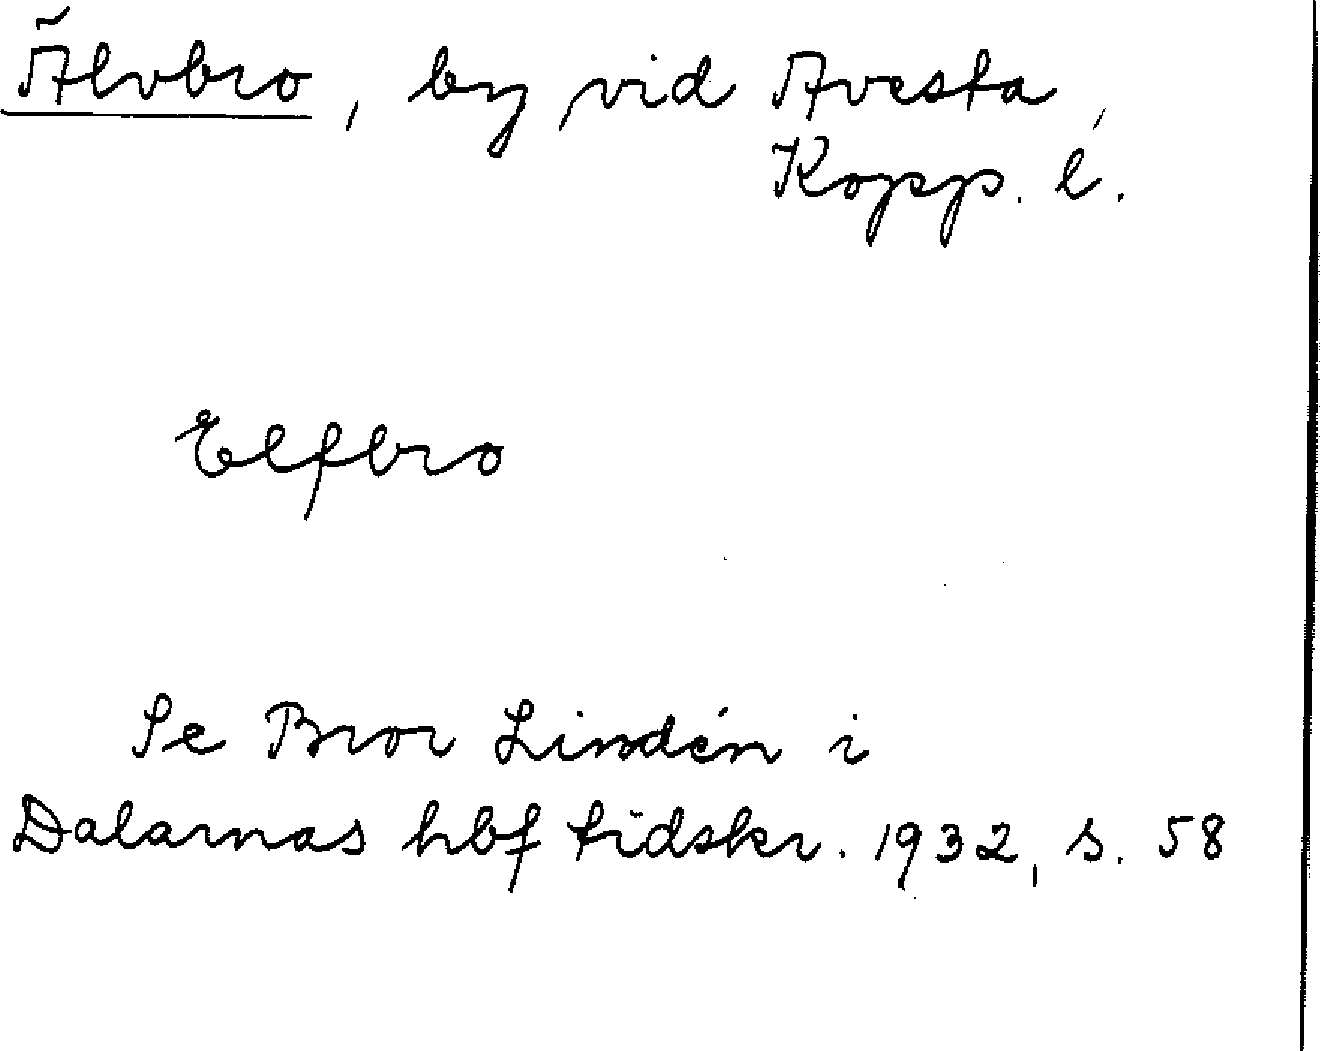 Älvbro, by vid Avesta,
Kopp. l.
Elfbro
Se Bror Lindén i
Dalarnas hbf tidskr. 1932, s. 58